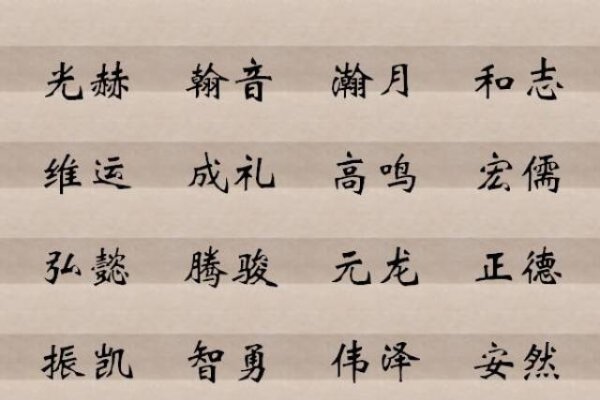 光赫 翰音 瀚月 和志
维运 成礼 高鸣 宏儒
弘懿 腾骏 元龙 正德
振凯 智勇 伟泽 安然